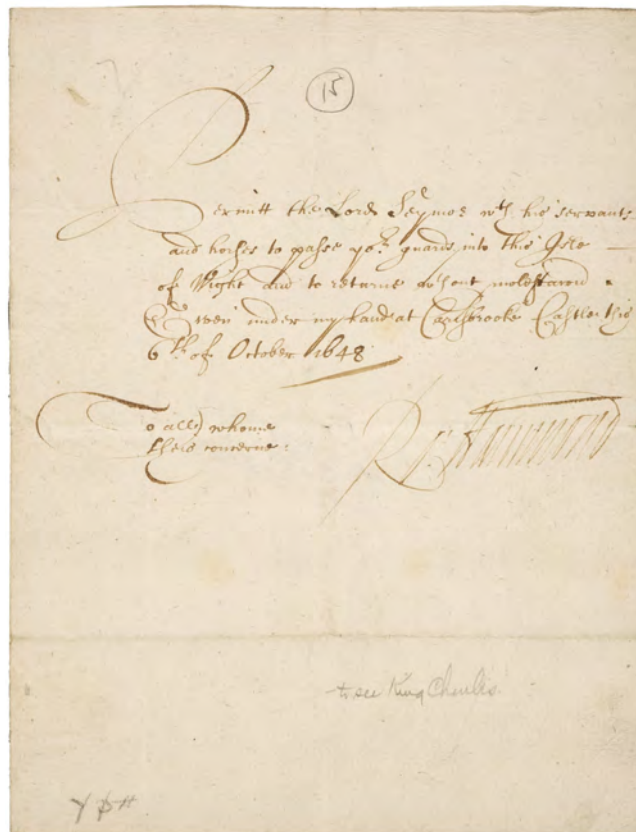 15
Permitt the Lord Seymor wth his servants
and horses to passe yor guards into this Isle
of Wight and to returne wthout molestacion.
Given under my hand at Carisbrooke Castle this
6th of October 1648
To all whome
theis concerne:
Ro: Hammond
to see King Charles.